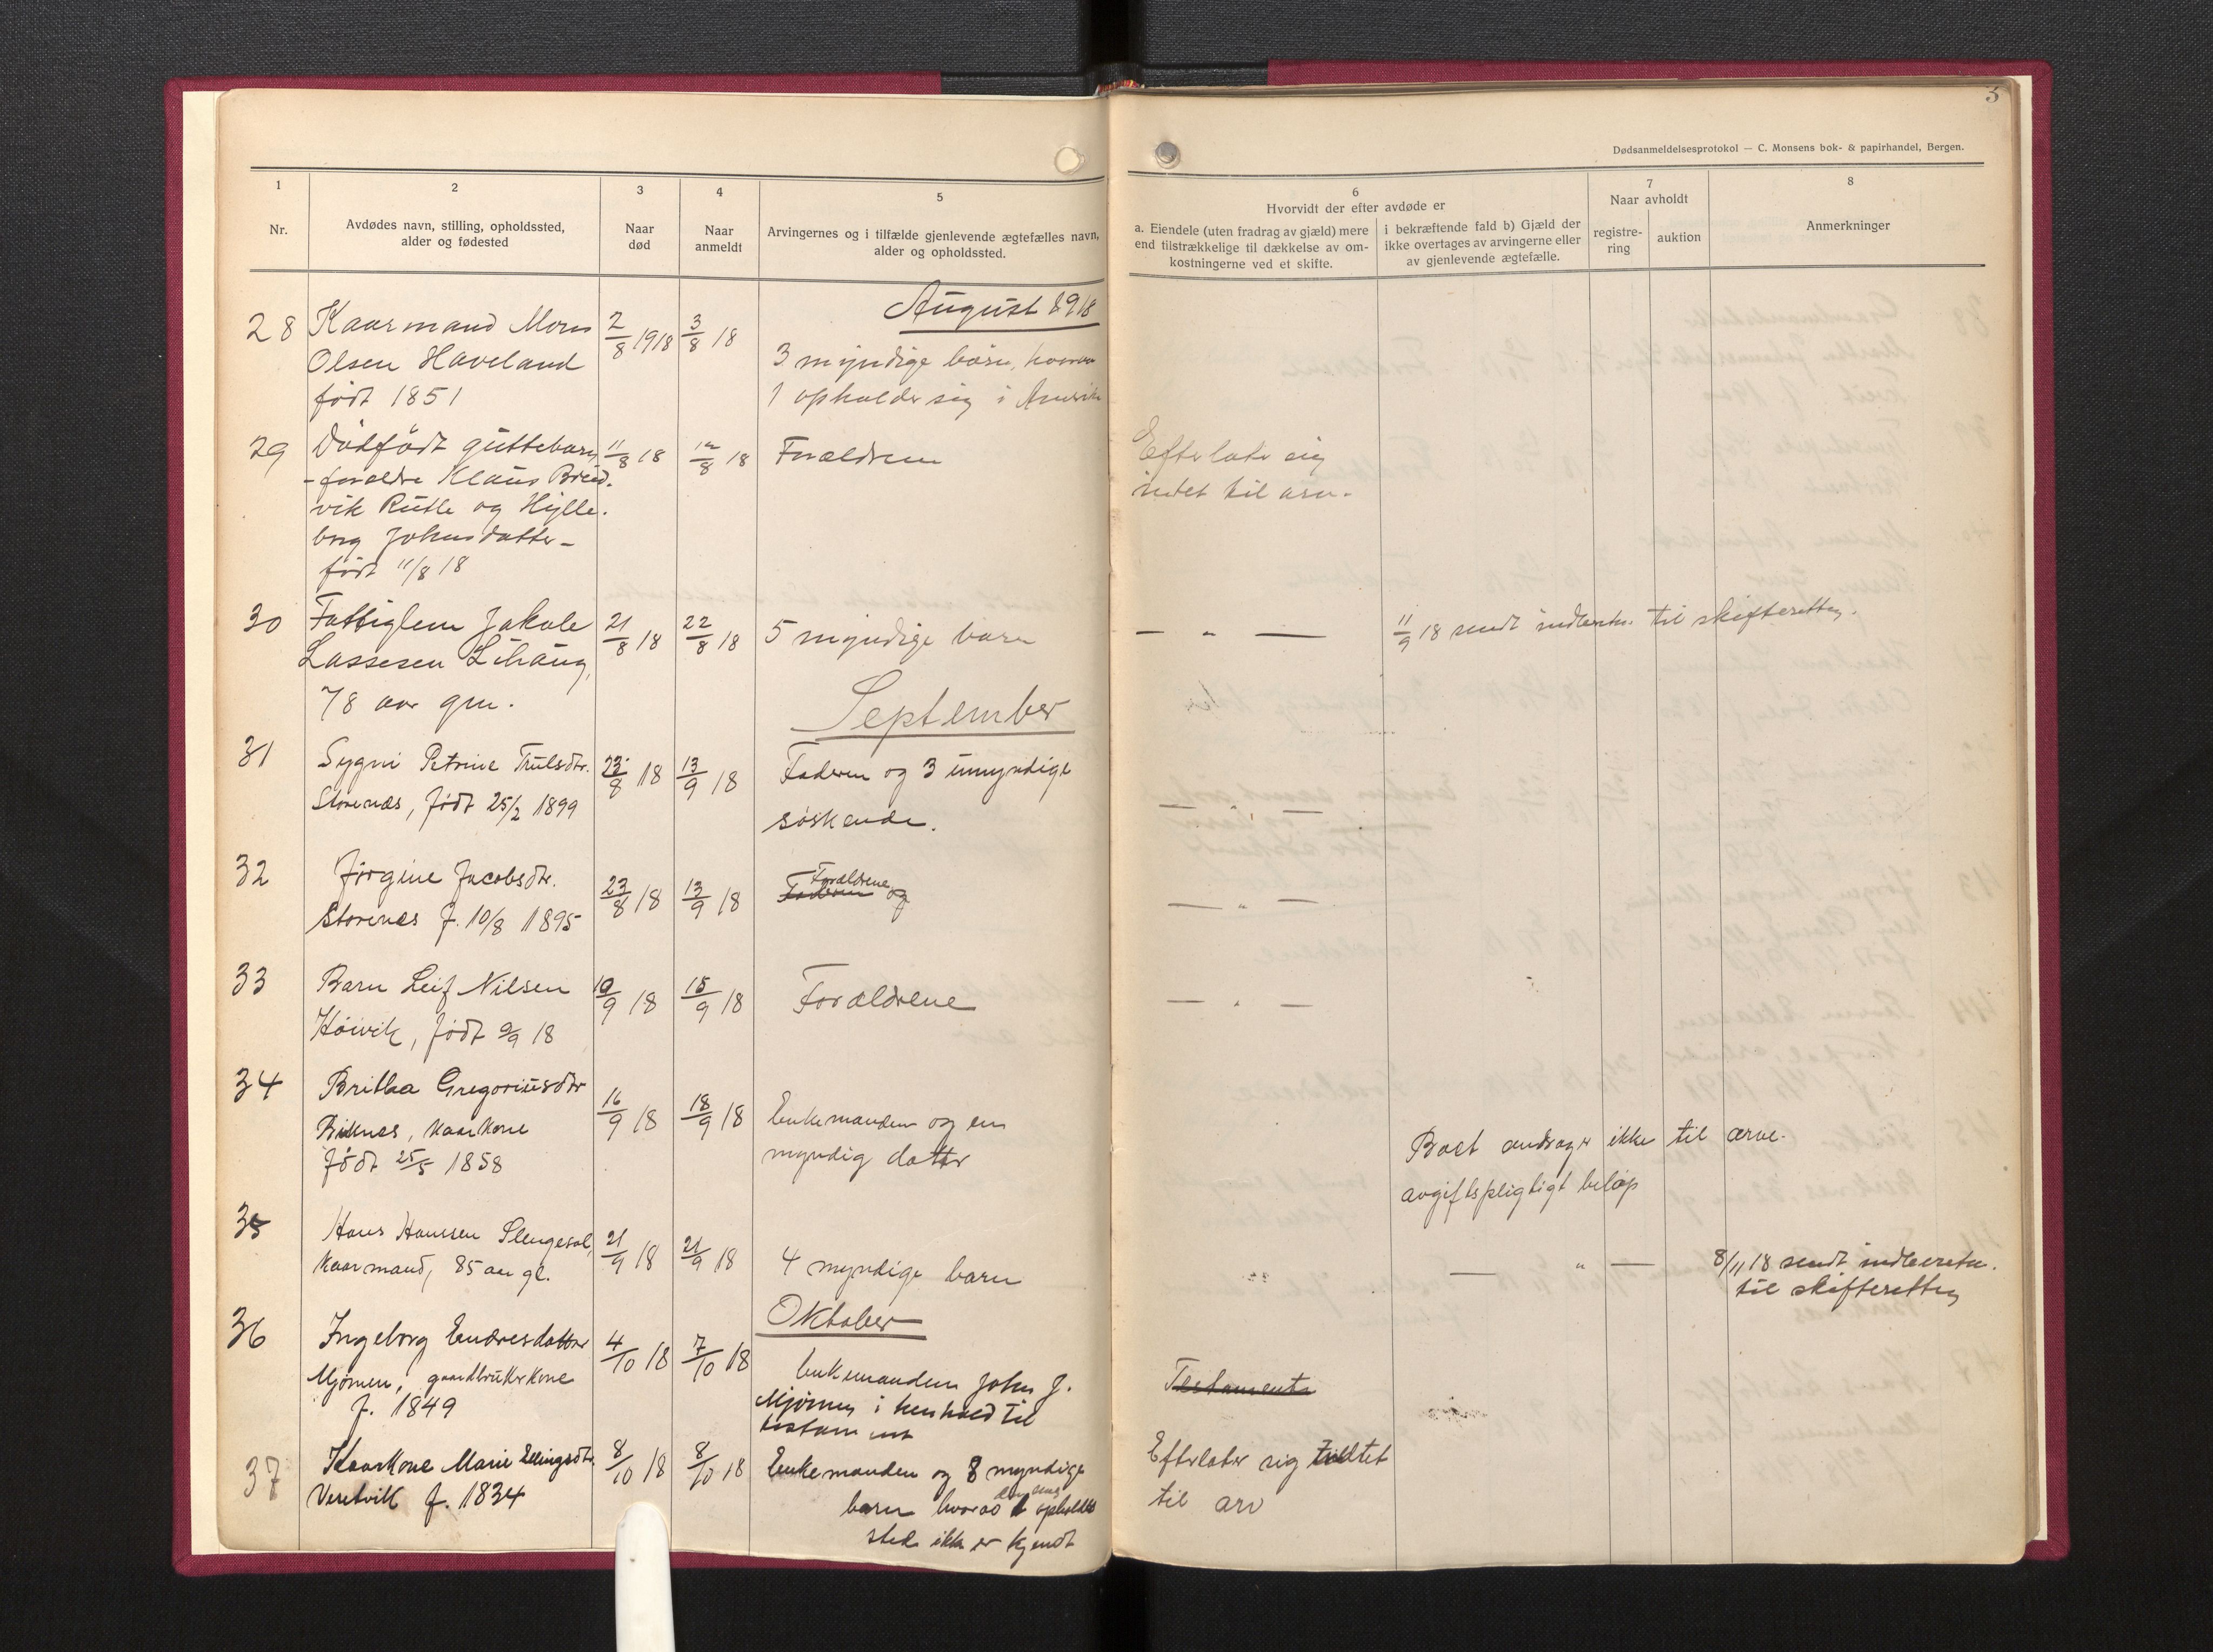 3
Dødsanmeldelsesprotokol — C. Monsens bok- & papirhandel, Bergen.
1
Nr.
2
Avdødes navn, stilling, opholdssted,
alder og fødested
3
Naar
død
4
Naar
anmeldt
5
Arvingernes og i tilfælde gjenlevende ægtefælles navn,
alder og opholdssted.
6
Hvorvidt der efter avdøde er
a. Eiendele (uten fradrag av gjæld) mere
end tilstrækkelige til dækkelse av om-
kostningerne ved et skifte.
i bekræftende fald b) Gjæld der
ikke overtages av arvingerne eller
av gjenlevende ægtefælle.
7
Naar avholdt
registre-
ring
auktion
8
Anmerkninger
August 1918
28 Kaarmand Mons 2/8 1918 3/8 18
Olsen Haveland
født 1851
3 myndige børn, hvorav
1 opholder sig i Amerika
29 Dødfødt guttebarn 11/8 18 12/8 18 Forældrene
- forældre Klaus Breid-
vik Rutle og Hylle-
borg Johnsdatter -
født 11/8 18
Efterlater sig
intet til arv.
30 Fattiglem Jakob 21/8 18 22/8 18 5 myndige barn — " — 11/9 18 sendt indberetn. til skifteretten.
Lassesen Lihaug,
78 aar gm.
September
31 Sygni Petrine Trulsdtr. 23/8 18 13/9 18 Faderen og 3 umyndige
Storenæs, født 25/2 1899 søskende. — " —
32 Jørgine Jacobsdtr. 23/8 18 13/9 18 Faderen Forældrene og — " —
Storenæs f. 10/8 1895
33 Barn Leif Nilsen 10/9 18 15/9 18 Forældrene — " —
Høivik, født 9/9 18
34 Britha Gregoriusdtr 16/9 18 18/9 18 Enkemanden og en
Biknes, kaarkone myndig datter
født 25/5 1858
Boet andrager ikke til arve-
avgiftspligtigt beløp
35 Hans Hanssen Slengesol, 21/9 18 21/9 18 4 myndige barn — " —
kaarmand, 85 aar gl.
8/11 18 sendt indberetn.
til skifteretten
Oktober
36 Ingeborg Endresdatter 4/10 18 7/10 18 Enkemanden John J.
Mjømen, gaardbrukerkone Mjømen i henhold til
f. 1849 testament
Testamente
37 Kaarkone Marie Ellingsdtr. 8/10 18 8/10 18 Enkemanden og 8 myndige
Veretvik f. 1834 barn hvorav opholds
sted ikke er kjendt
Efterlater sig intet
til arv